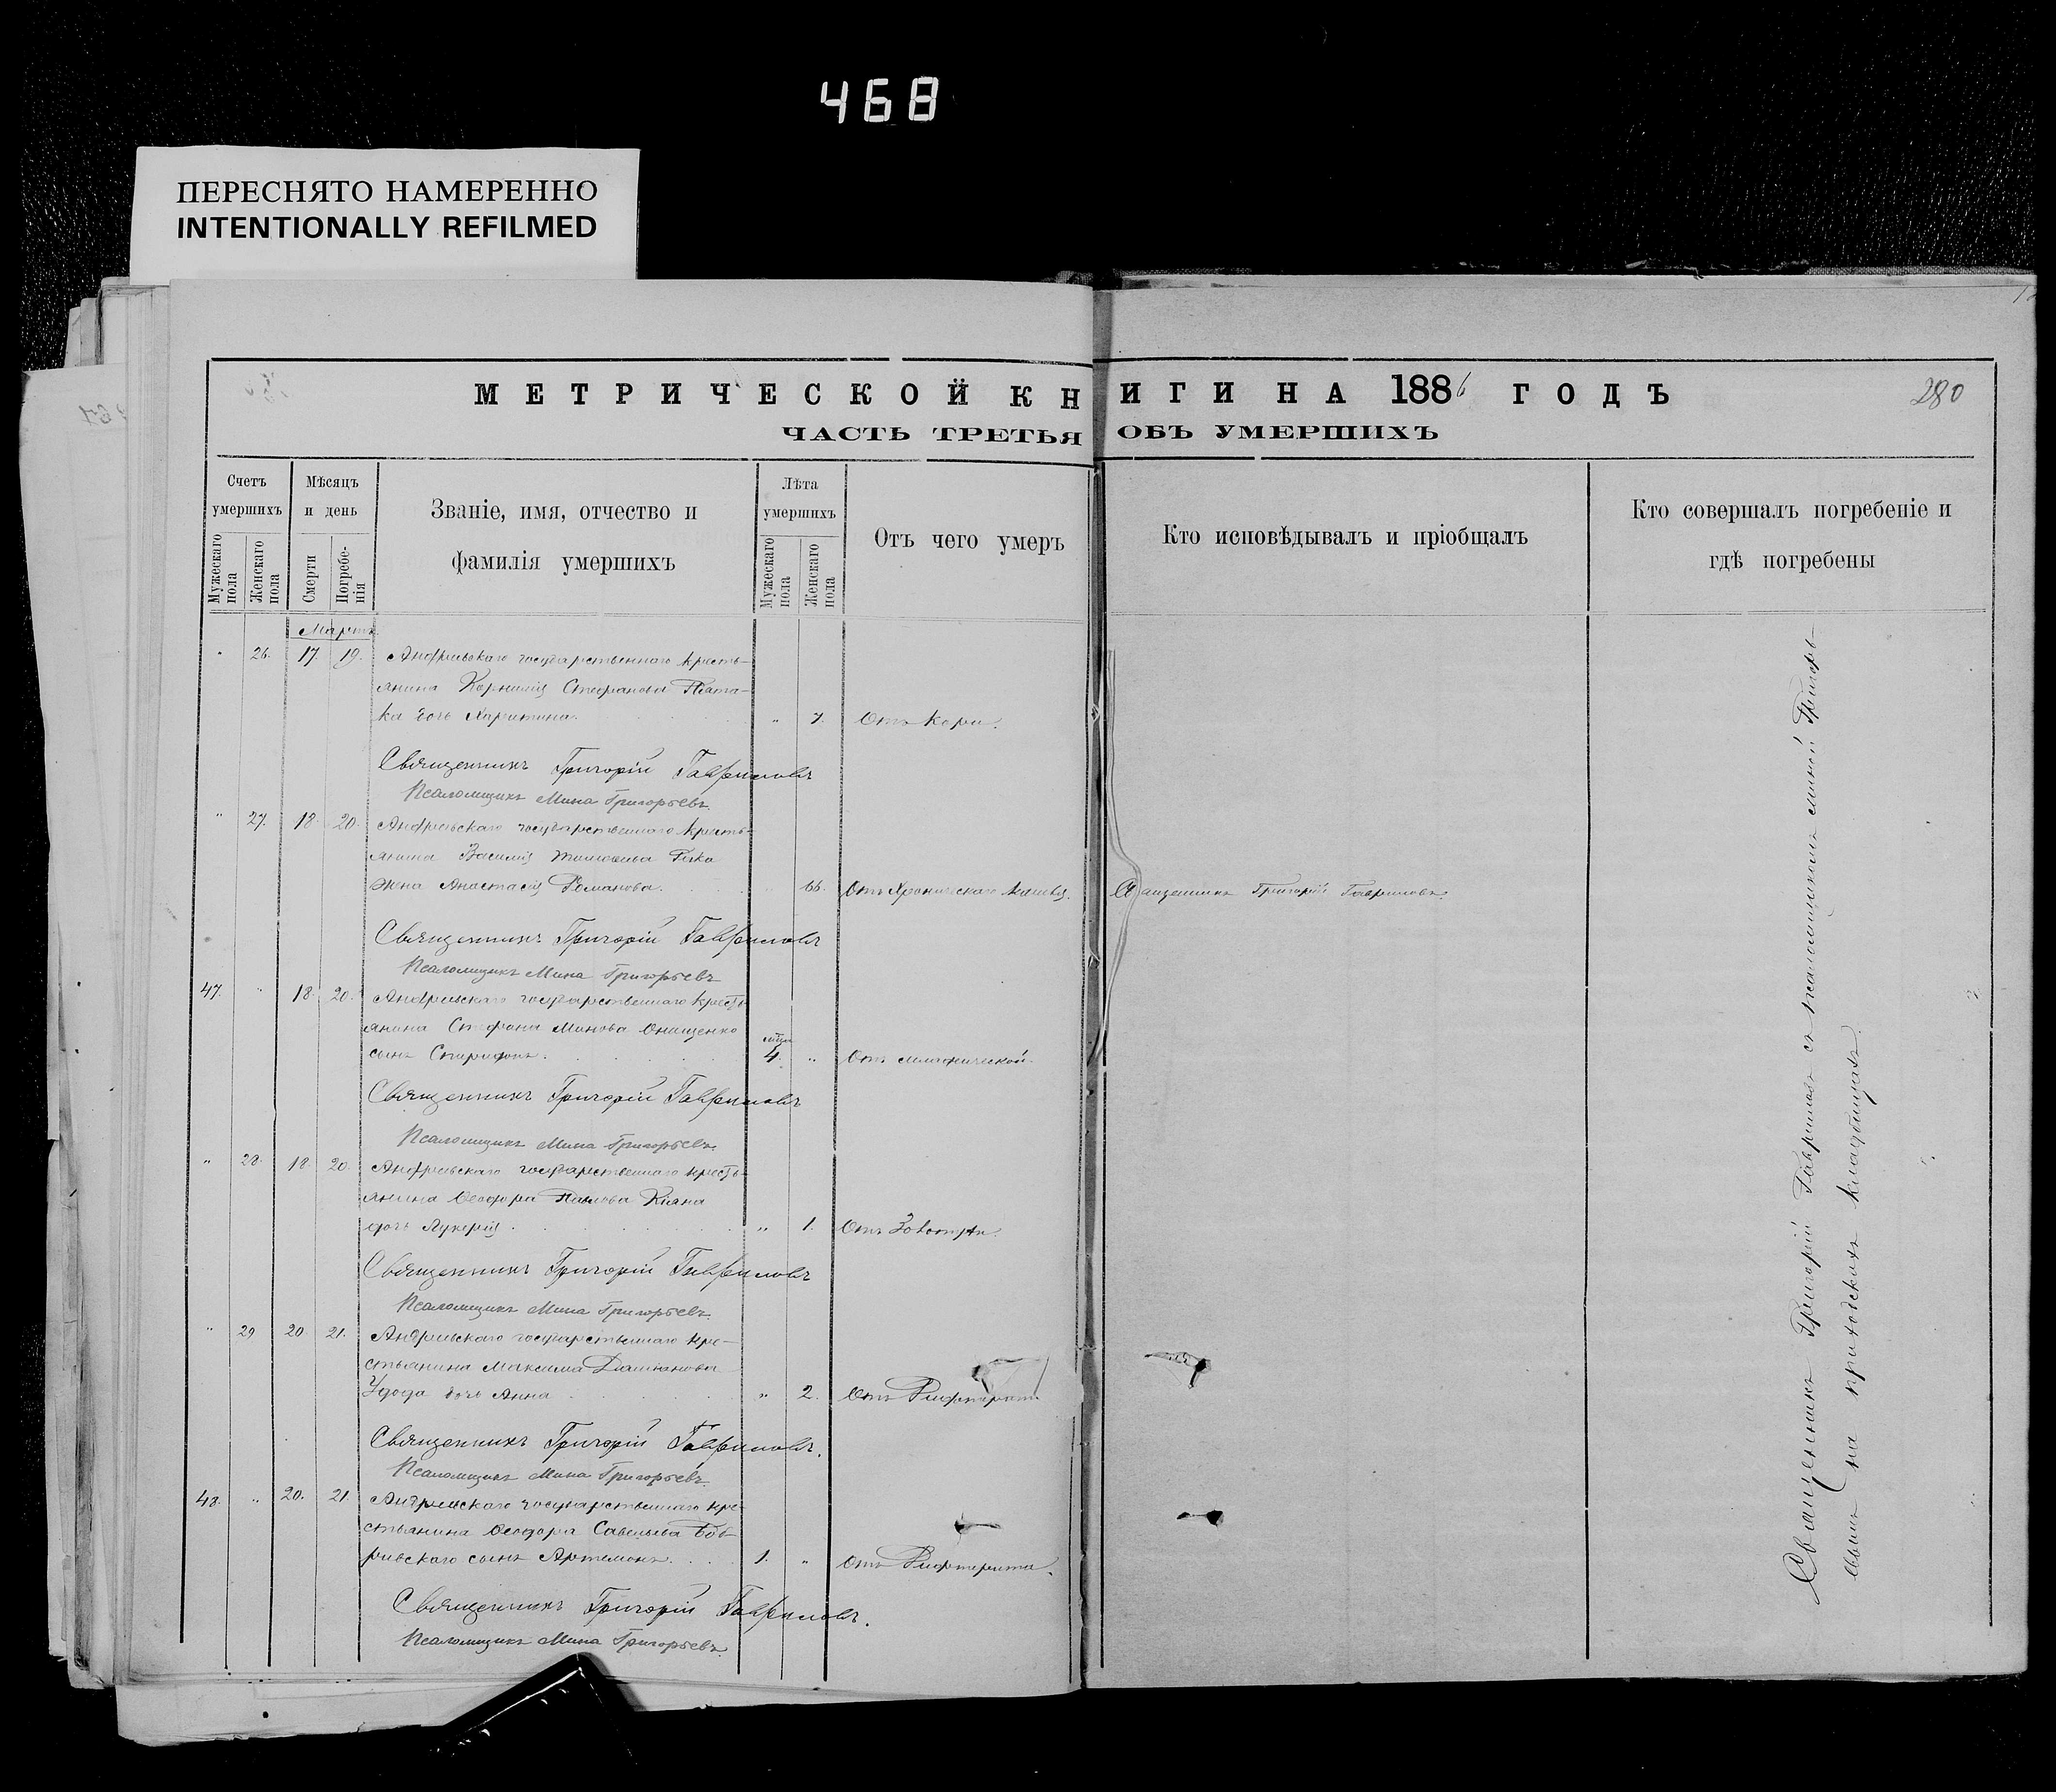 468
ПЕРЕСНЯТО НАМЕРЕННО
INTENTIONALLY REFILMED
МЕТРИЧЕСКОЙ КНИГИ НА 1886 ГОДЪ
280
ЧАСТЬ ТРЕТЬЯ ОБЪ УМЕРШИХЪ
Счетъ умершихъ
Мужескаго пола
Женскаго пола
Мѣсяцъ и день
Смерти
Погребенія
Званіе, имя, отчество и
фамилія умершихъ
Лѣта умершихъ
Мужескаго пола
Женскаго пола
Отъ чего умеръ
Кто исповѣдывалъ и пріобщалъ
Кто совершалъ погребеніе и
гдѣ погребены
Мартъ
" 26. 17. 19. Андреевскаго государственнаго кресть-
янина Корнилія Стефанова
ка дочь Харитина. " 7. Отъ кори.
Священникъ Григорій Гавриловъ
Псаломщикъ Мина Григорьевъ
" 27. 18. 20. Андреевскаго государственнаго кресть-
янина Василія
жена Анастасія Романова. 66. Отъ хроническаго кашля. Священникъ Григорій Гавриловъ
Священникъ Григорій Гавриловъ
Псаломщикъ Мина Григорьевъ
47. " 18. 20. Андреевскаго государственнаго кресть-
янина Стефана Минова Онищенко
сынъ Спиридонъ. 4. " Отъ
Священникъ Григорій Гавриловъ
Псаломщикъ Мина Григорьевъ
" 28. 18. 20. Андреевскаго государственнаго кресть-
янина Ѳеодора Павлова Кіяна
дочь Лукерія. " 1. Отъ
Священникъ Григорій Гавриловъ
Псаломщикъ Мина Григорьевъ
" 29 20 21. Андреевскаго государственнаго кре-
стьянина Максима
Удода дочь Анна " 2. Отъ
Священникъ Григорій Гавриловъ.
Псаломщикъ Мина Григорьевъ
48. " 20. 21 Андреевскаго государственнаго кре-
стьянина Ѳеодора Савельева Боб-
ривскаго сынъ Артемонъ. 1. " Отъ Дифтерита.
Священникъ Григорій Гавриловъ.
Псаломщикъ Мина Григорьевъ
Священникъ Григорій Гавриловъ съ псаломщикомъ Миной Григорь-
евымъ на приходскихъ кладбищахъ.